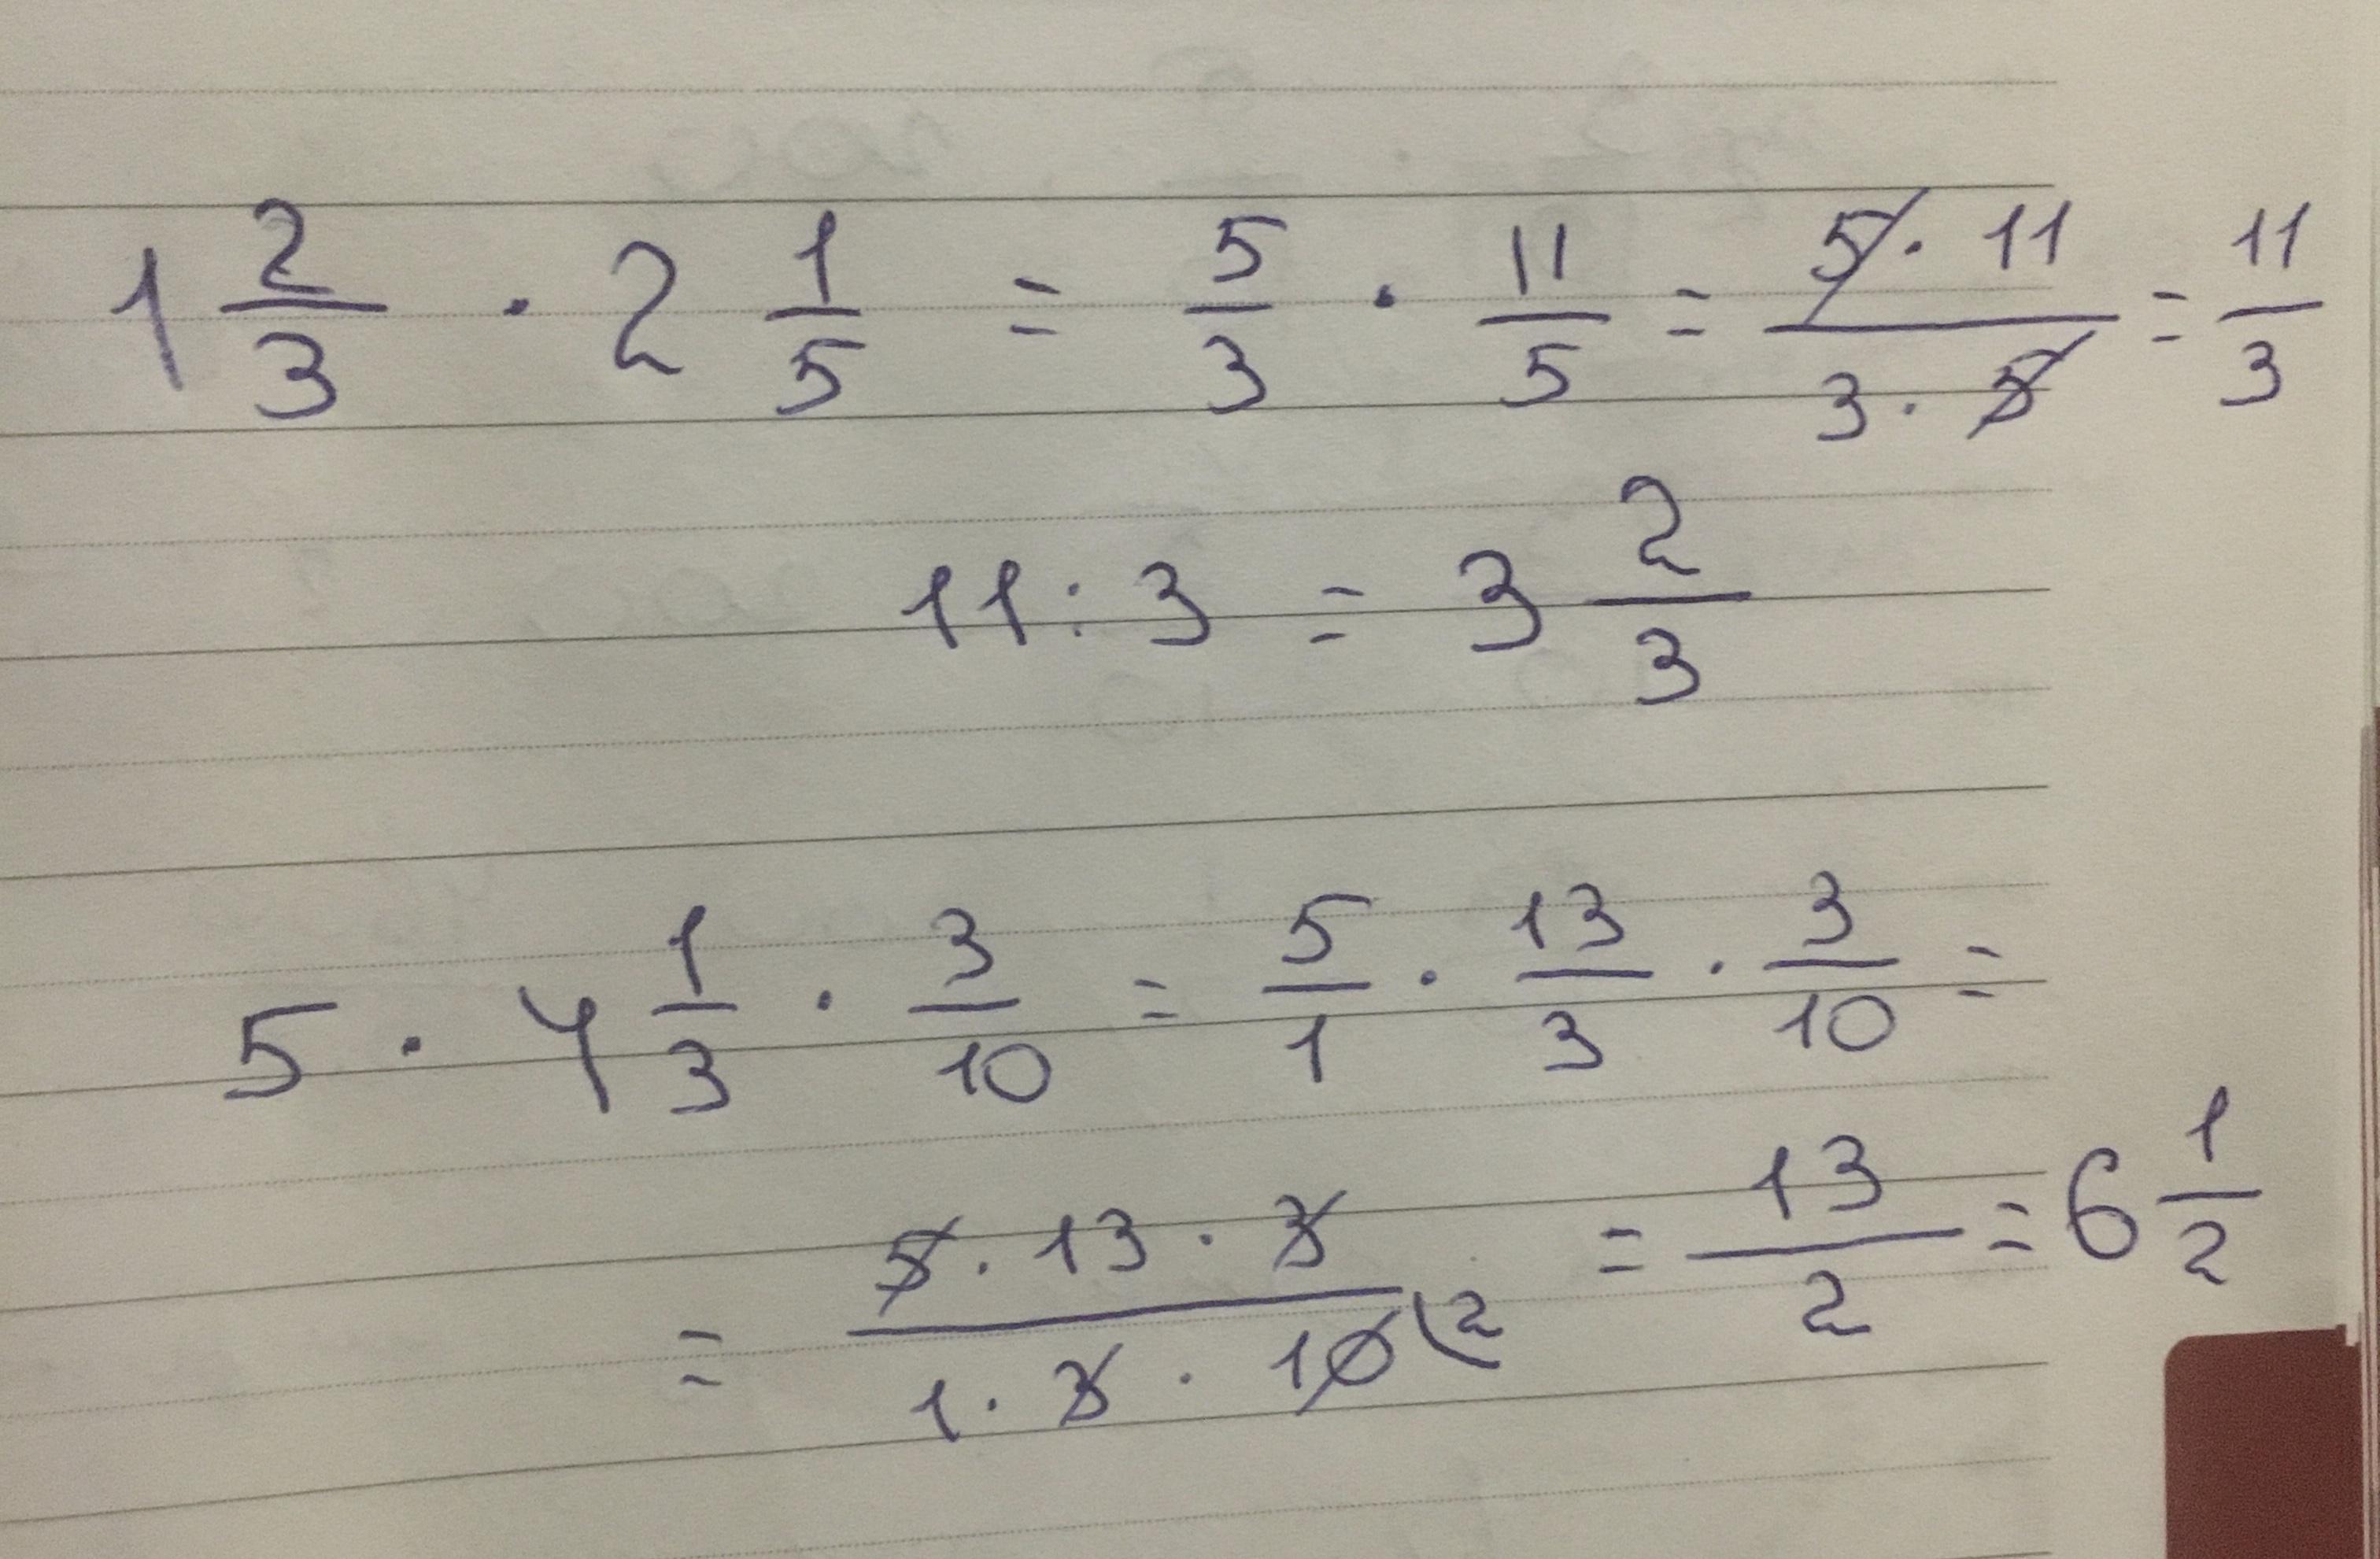 1 2/3 · 2 1/5 = 5/3 · 11/5 = 5 · 11/3 · 5 = 11/3
11 : 3 = 3 2/3
5 · 4 1/3 · 3/10 = 5/1 · 13/3 · 3/10 =
= 5 · 13 · 3/1 · 3 · 10 (2 = 13/2 = 6 1/2